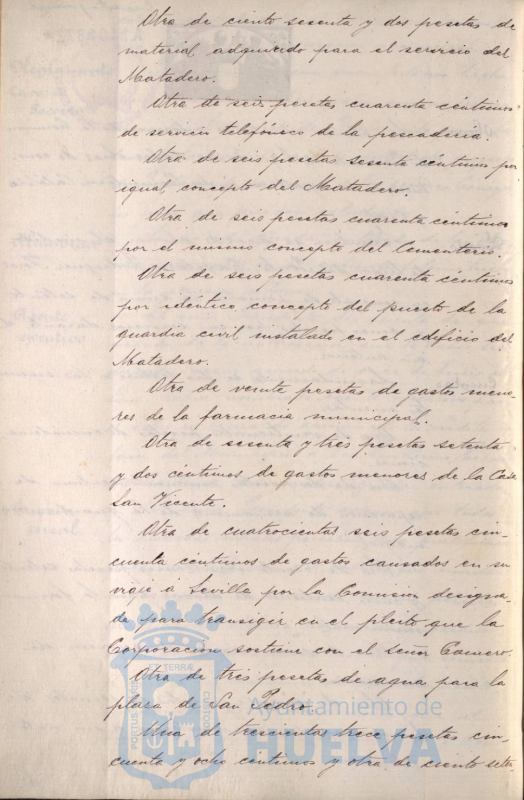 Otra de ciento sesenta y dos pesetas de
material adquirido para el servicio del
Matadero.
Otra de seis pesetas cuarenta céntimos
de servicio telefónico de la pescadería.
Otra de seis pesetas sesenta céntimos por
igual concepto del Matadero.
Otra de seis pesetas cuarenta céntimos
por el mismo concepto del Cementerio.
Otra de seis pesetas cuarenta céntimos
por idéntico concepto del puesto de la
guardia civil instalado en el edificio del
Matadero.
Otra de veinte pesetas de gastos meno-
res de la farmacia municipal.
Otra de sesenta y tres pesetas setenta
y dos céntimos de gastos menores de la Casa
San Vicente.
Otra de cuatrocientas seis pesetas cin-
cuenta céntimos de gastos causados en su
viaje á Sevilla por la Comision designa-
da para transigir en el pleito que la
Corporacion sostiene con el señor
Otra de tres pesetas de agua para la
plaza de San Pedro.
Una de trescientas trece pesetas cin-
cuenta y ocho centimos y otra de ciento seten
PORTUS MARIS ET TERRÆ CUSTODIA
Ayuntamiento de
HUELVA